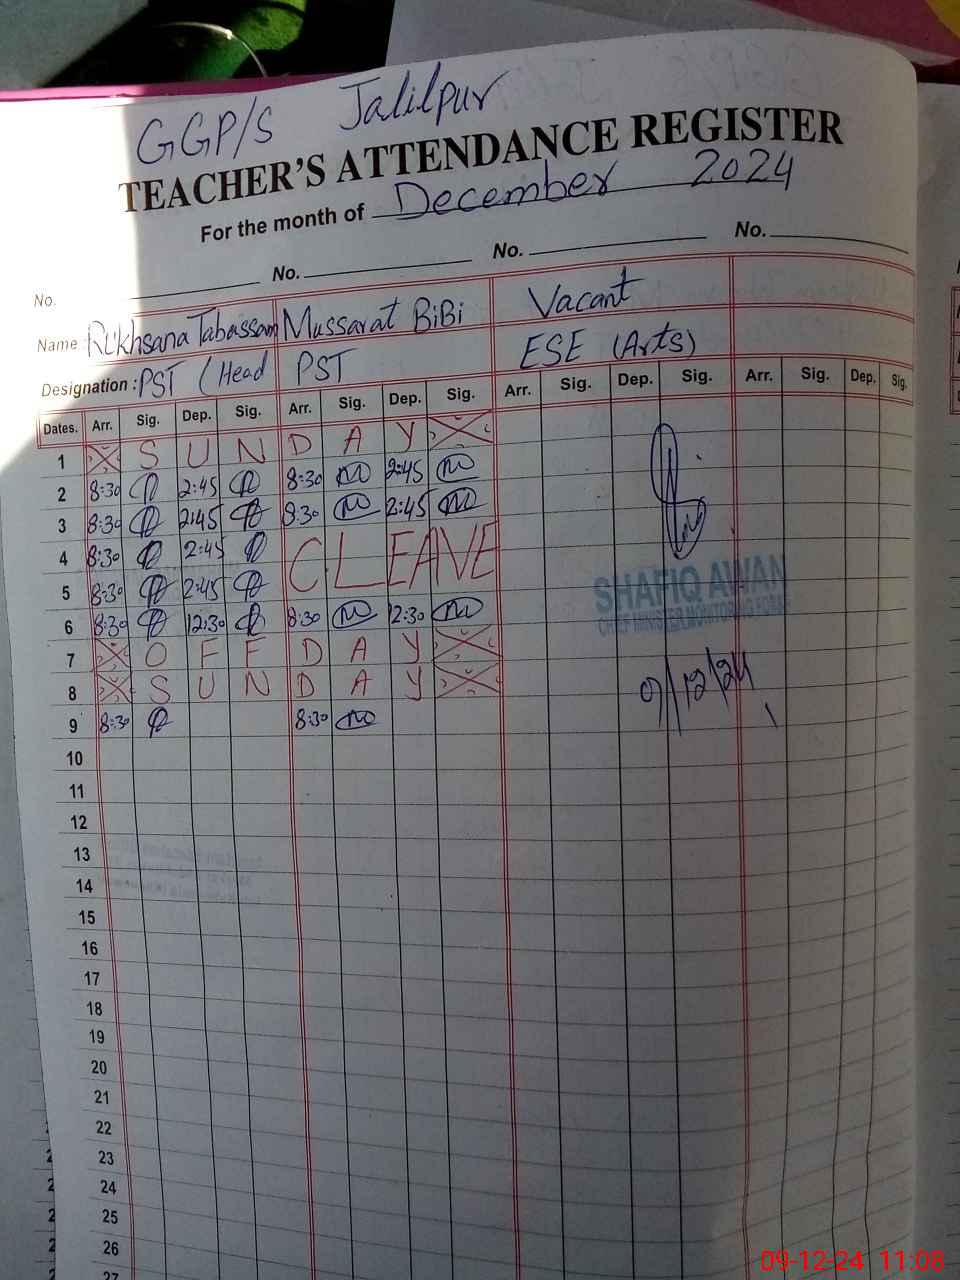 GGP/S Jalilpur
TEACHER'S ATTENDANCE REGISTER
For the month of December 2024
No. No. No. No.
Name Rukhsana Tabassam Mussarat BiBi Vacant
Designation: PST (Head PST ESE (Arts)
Dates. Arr. Sig. Dep. Sig. Arr. Sig. Dep. Sig. Arr. Sig. Dep. Sig. Arr. Sig. Dep. Sig.
1 S U N D A Y
2 8:30 2:45 8:30 2:45
3 8:30 2:45 8:30 2:45
4 8:30 2:45 C.LEAVE
5 8:30 2:45
6 8:30 12:30 8:30 12:30
7 O F F D A Y
8 S U N D A Y
9 8:30 8:30
10
11
12
13
14
15
16
17
18
19
20
21
22
23
24
25
26
27
SHAFIQ AWAN
CHIEF MINISTER MONITORING FORCE
9/12/24
09-12-24 11:08